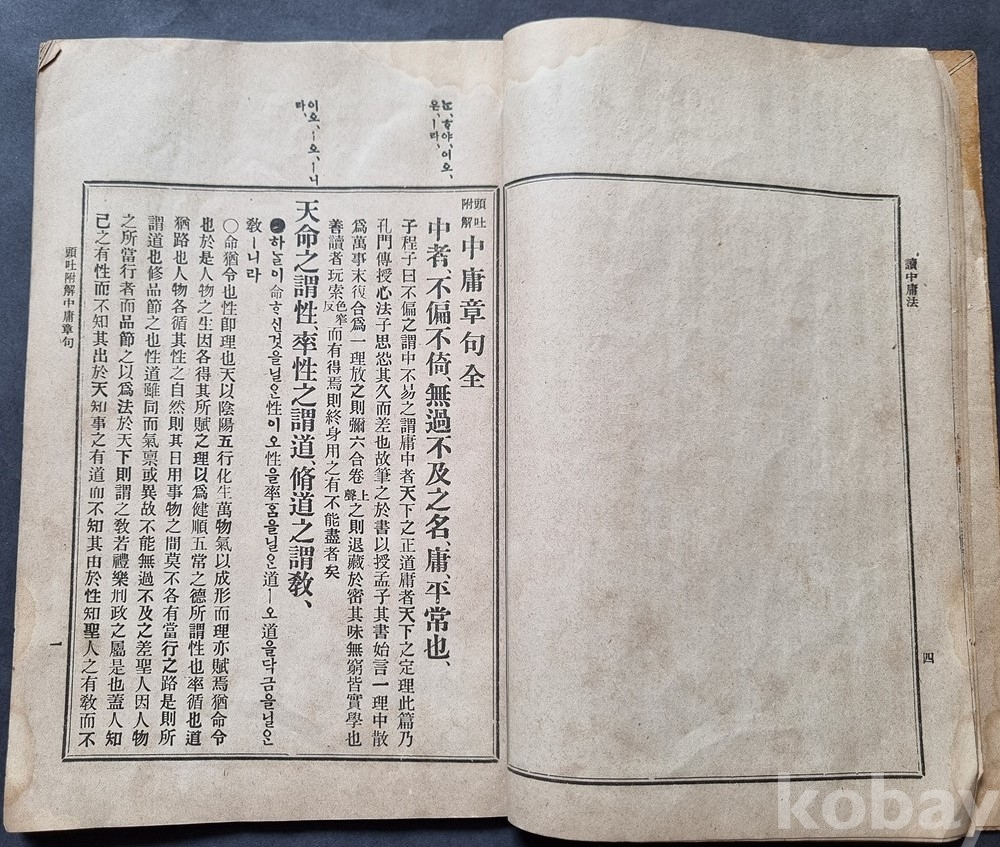 讀中庸法
四
頭吐
附解
中庸章句全
는、ᄒᆞ야、이오、
은、ㅣ라、
中者、不偏不倚、無過不及之名、庸、平常也、
子程子曰不偏之謂中不易之謂庸中者天下之正道庸者天下之定理此篇乃
孔門傳授心法子思恐其久而差也故筆之於書以授孟子其書始言一理中散
爲萬事末復合爲一理放之則彌六合卷上聲之則退藏於密其味無窮皆實學也
善讀者玩索色窄反而有得焉則終身用之有不能盡者矣
이오、ㅣ오、ㅣ니
라、
天命之謂性、率性之謂道、脩道之謂敎、
하ᄂᆞᆯ이命ᄒᆞ신것을닐ᄋᆞᆫ性이오性을率홈을닐ᄋᆞᆫ道ㅣ오道을닥금을닐ᄋᆞᆫ
敎ㅣ니라
○命猶令也性卽理也天以陰陽五行化生萬物氣以成形而理亦賦焉猶命令
也於是人物之生因各得其所賦之理以爲健順五常之德所謂性也率循也道
猶路也人物各循其性之自然則其日用事物之間莫不各有當行之路是則所
謂道也修品節之也性道雖同而氣禀或異故不能無過不及之差聖人因人物
之所當行者而品節之以爲法於天下則謂之敎若禮樂刑政之屬是也蓋人知
己之有性而不知其出於天知事之有道而不知其由於性知聖人之有敎而不
頭吐附解中庸章句
一
kobay